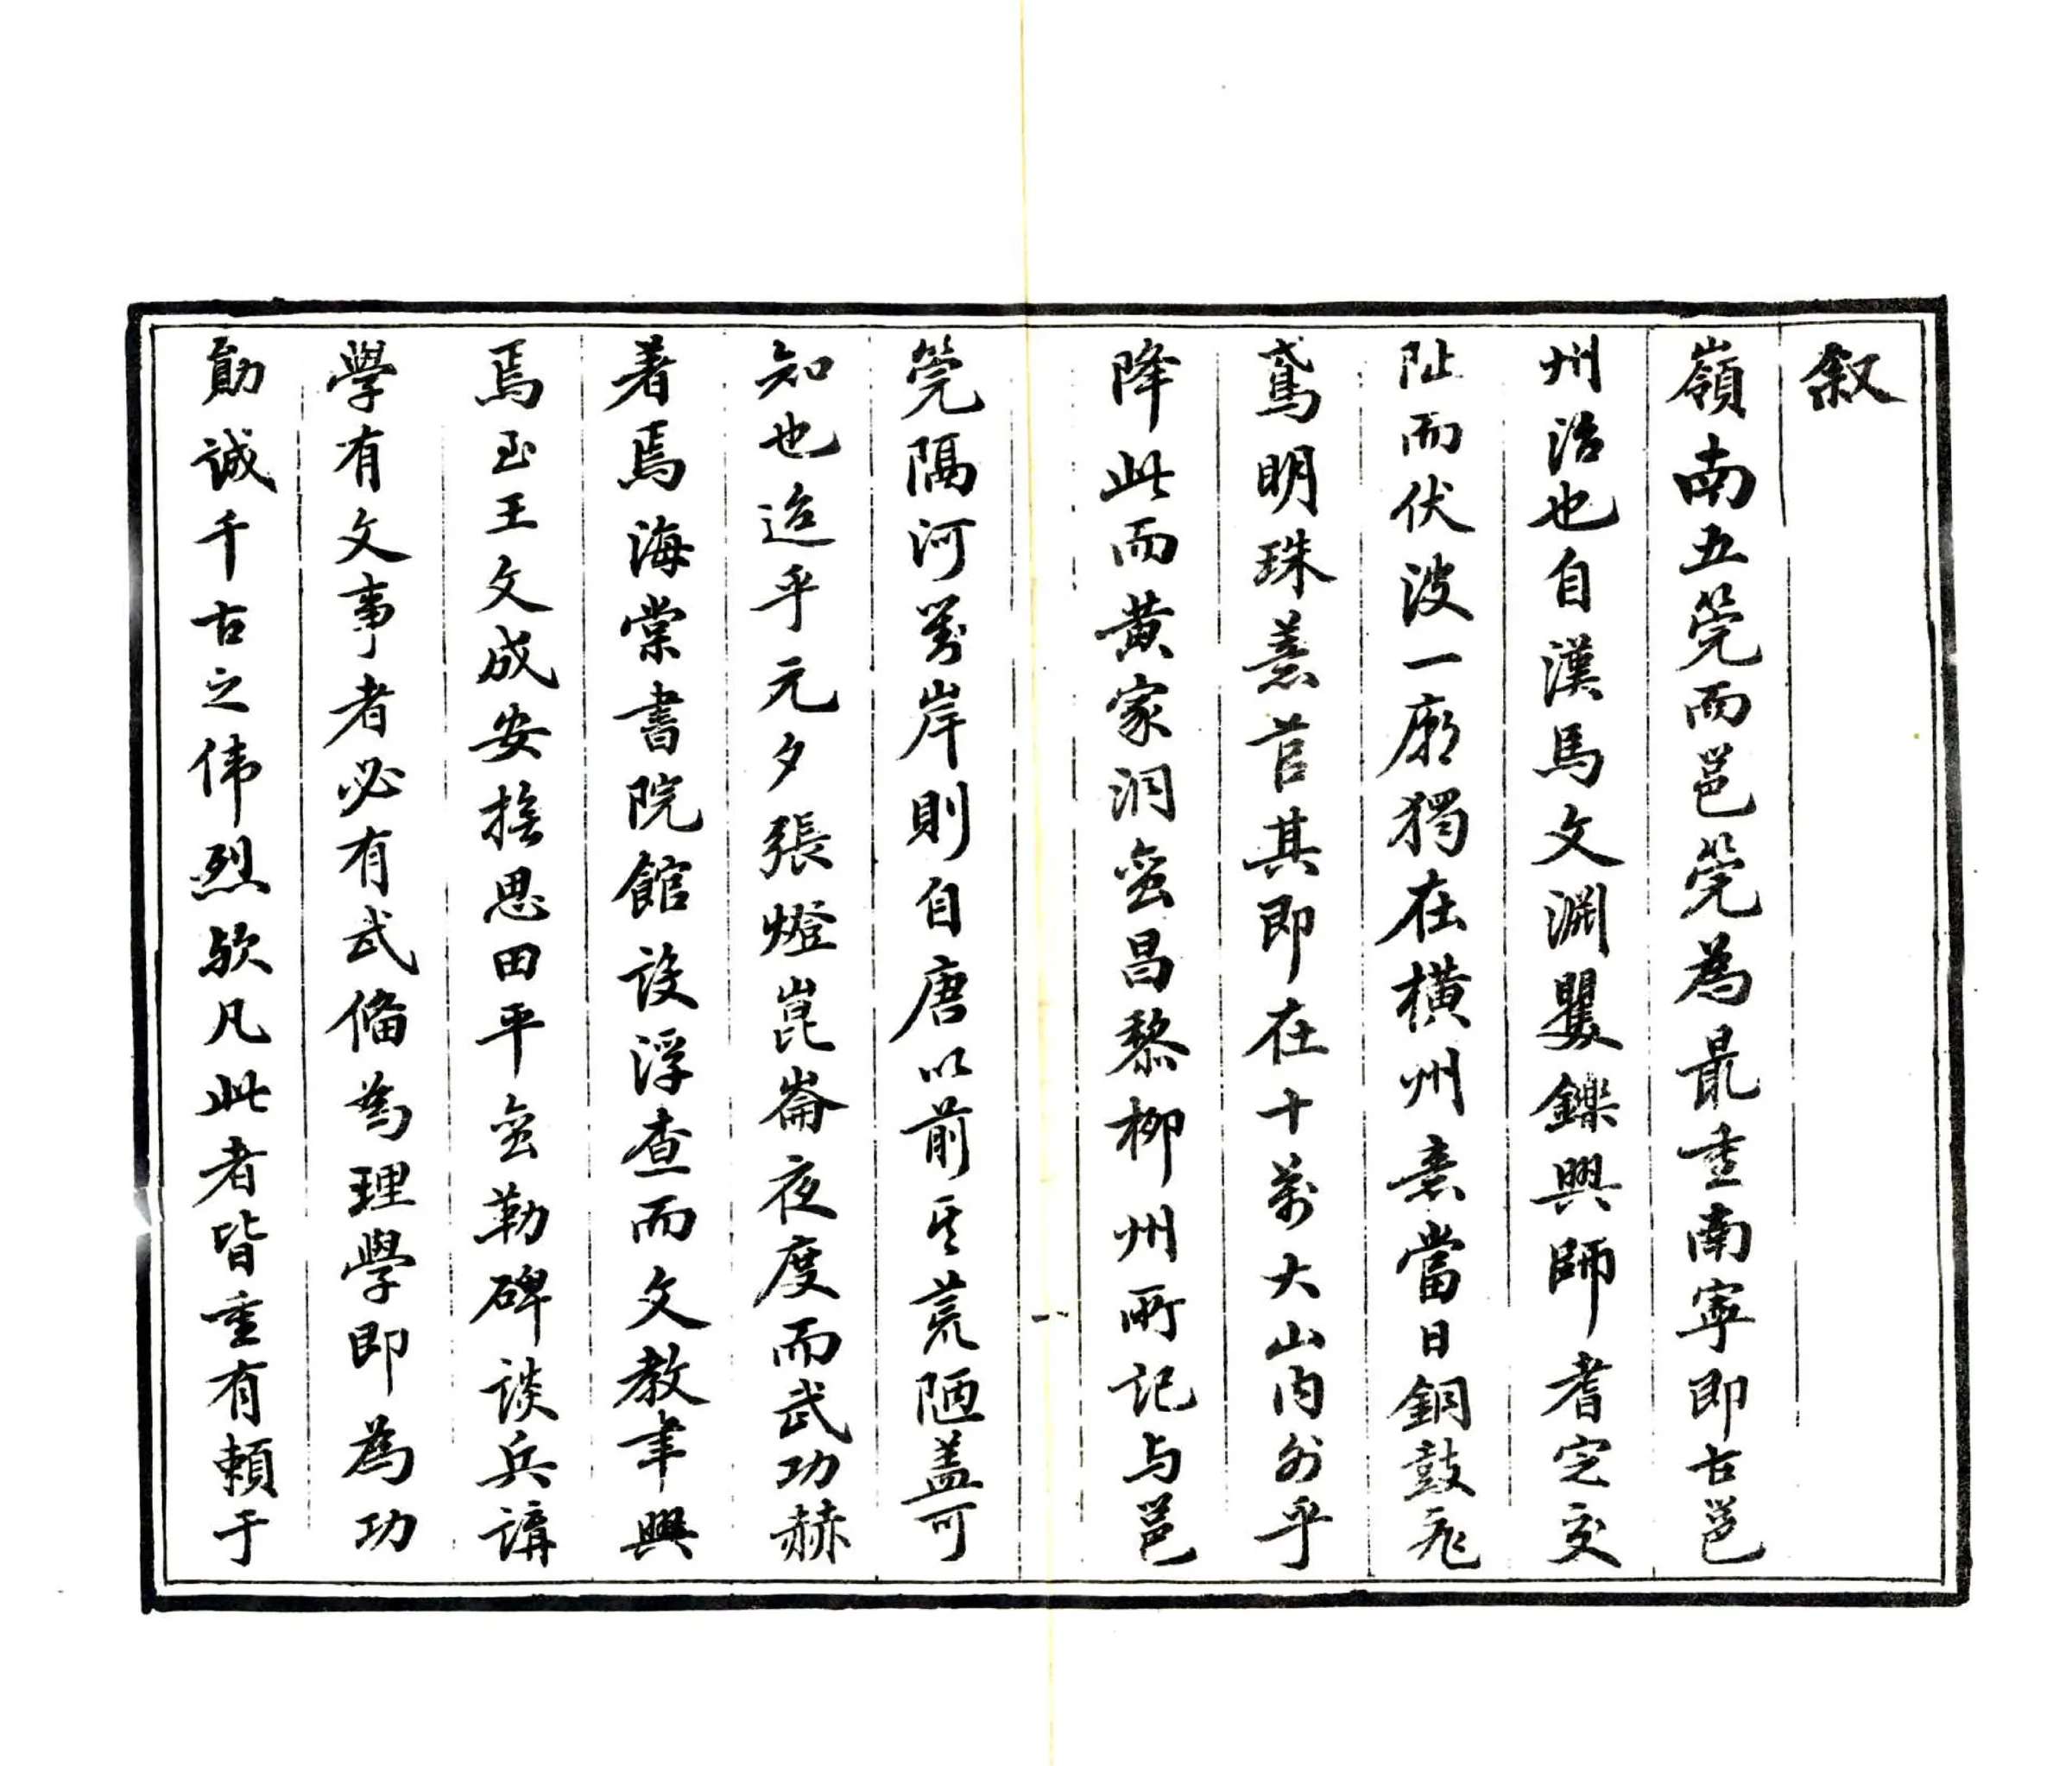 叙
嶺南五筦而邕筦為最重南寧即古邕
州治也自漢馬文淵矍鑠興師耆定交
阯而伏波一廟獨在橫州意當日銅鼓飛
鳶明珠薏苡其即在十萬大山內外乎
降此而黃家洞蛮昌黎柳州所記与邕
筦隔河對岸則自唐以前其荒陋蓋可
知也迨乎元夕張燈崑崙夜度而武功赫
著焉海棠書院館設浮查而文教聿興
焉至王文成安撫思田平蛮勒碑談兵講
學有文事者必有武俻為理學即為功
勛誠千古之伟烈欤凡此者皆重有賴于
一